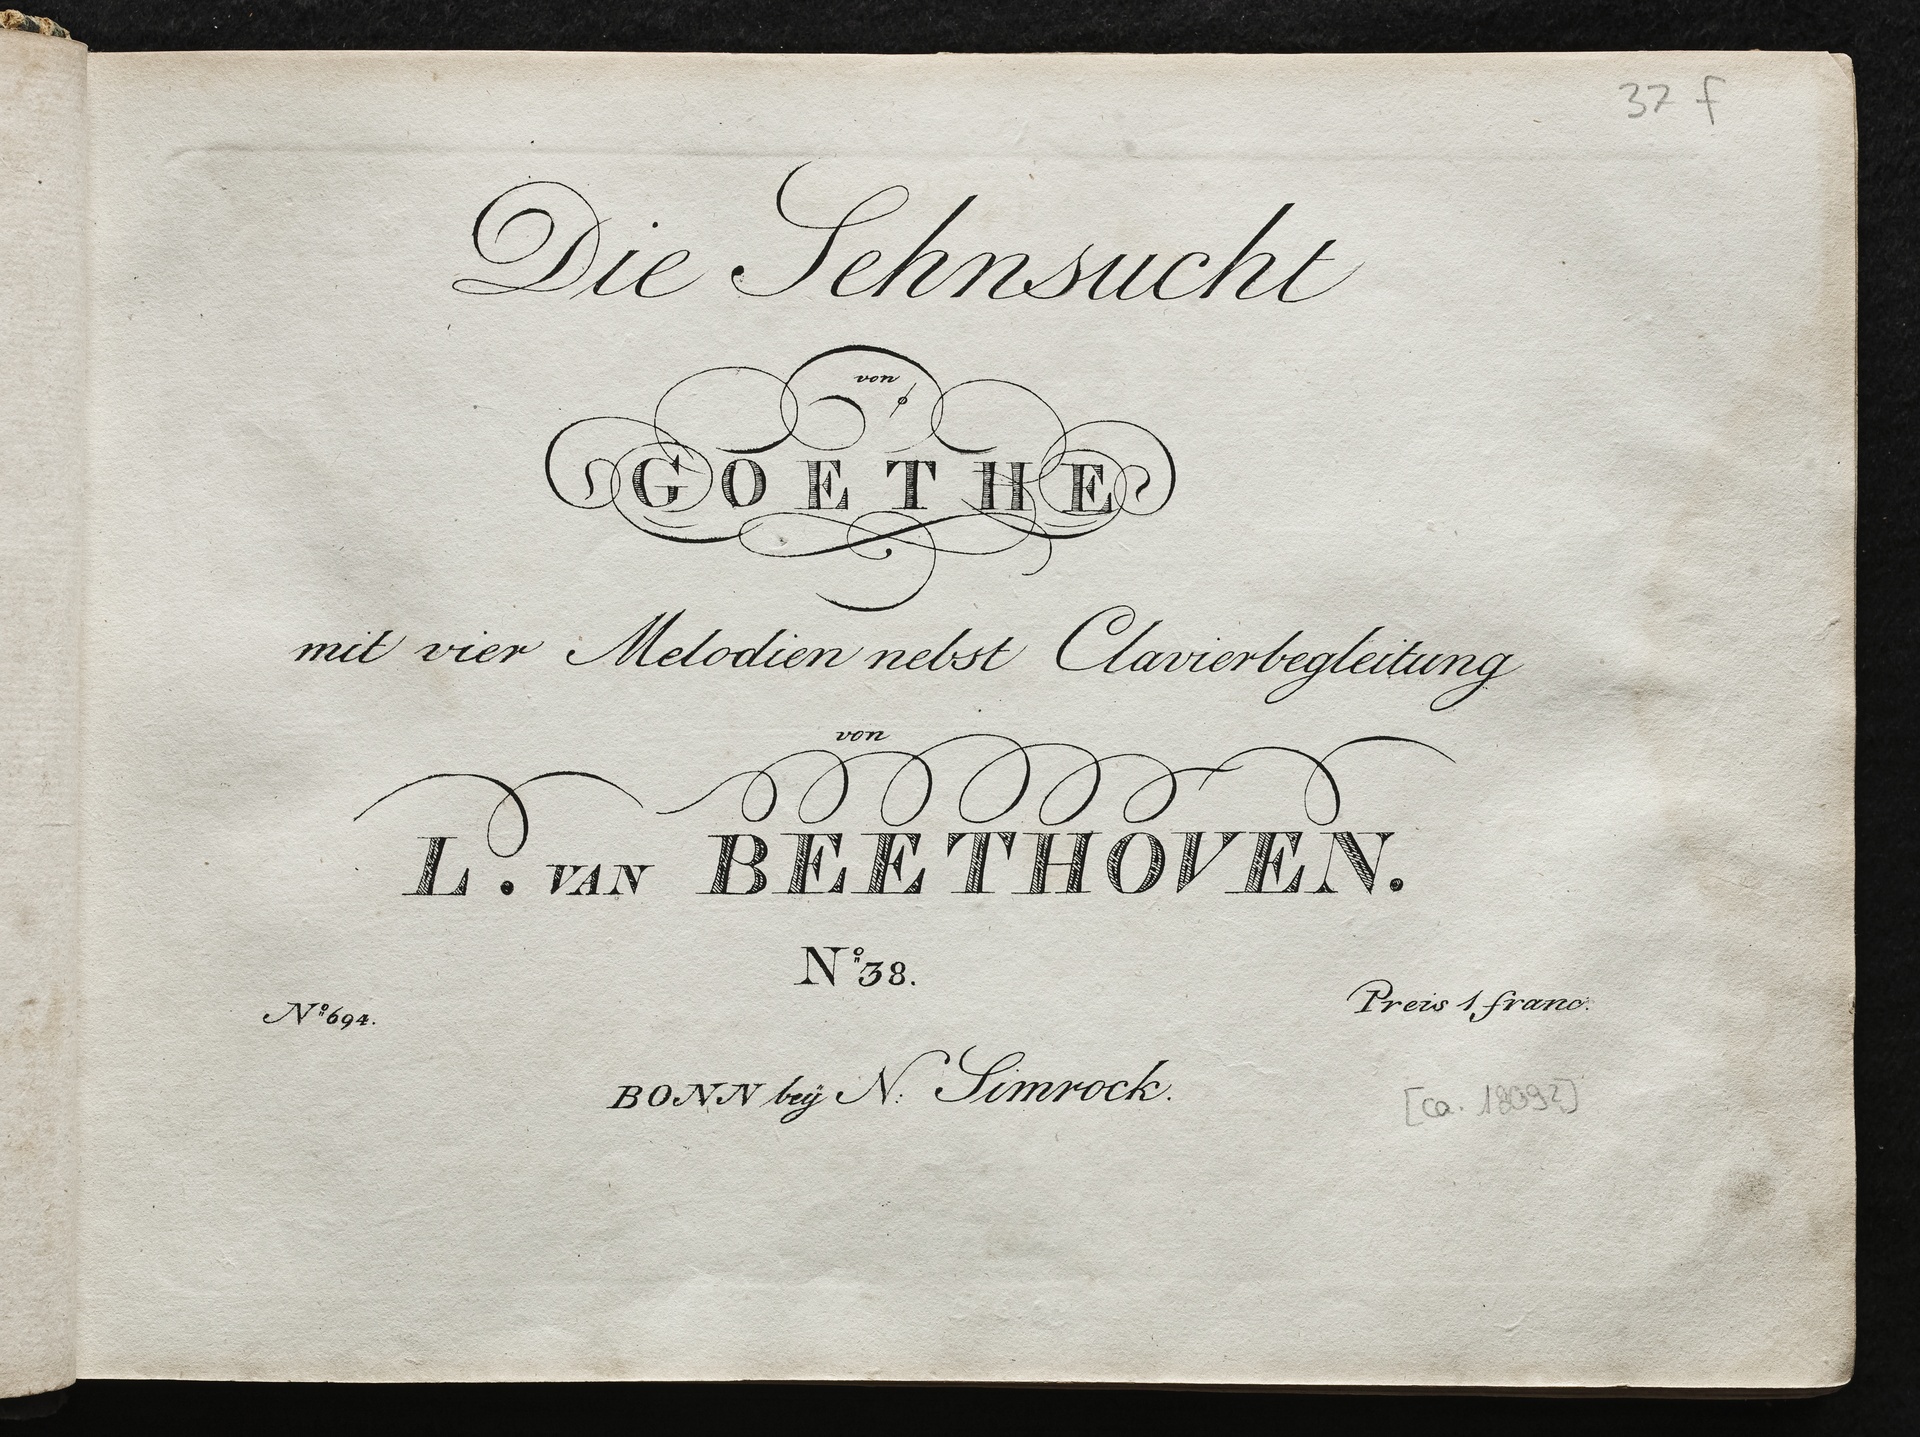 37 f
Die Sehnsucht
von
GOETHE
mit vier Melodien nebst Clavierbegleitung
von
L. VAN BEETHOVEN.
Nº 38.
Nº 694.
Preis 1 franc.
BONN beÿ N: Simrock.
[ca.